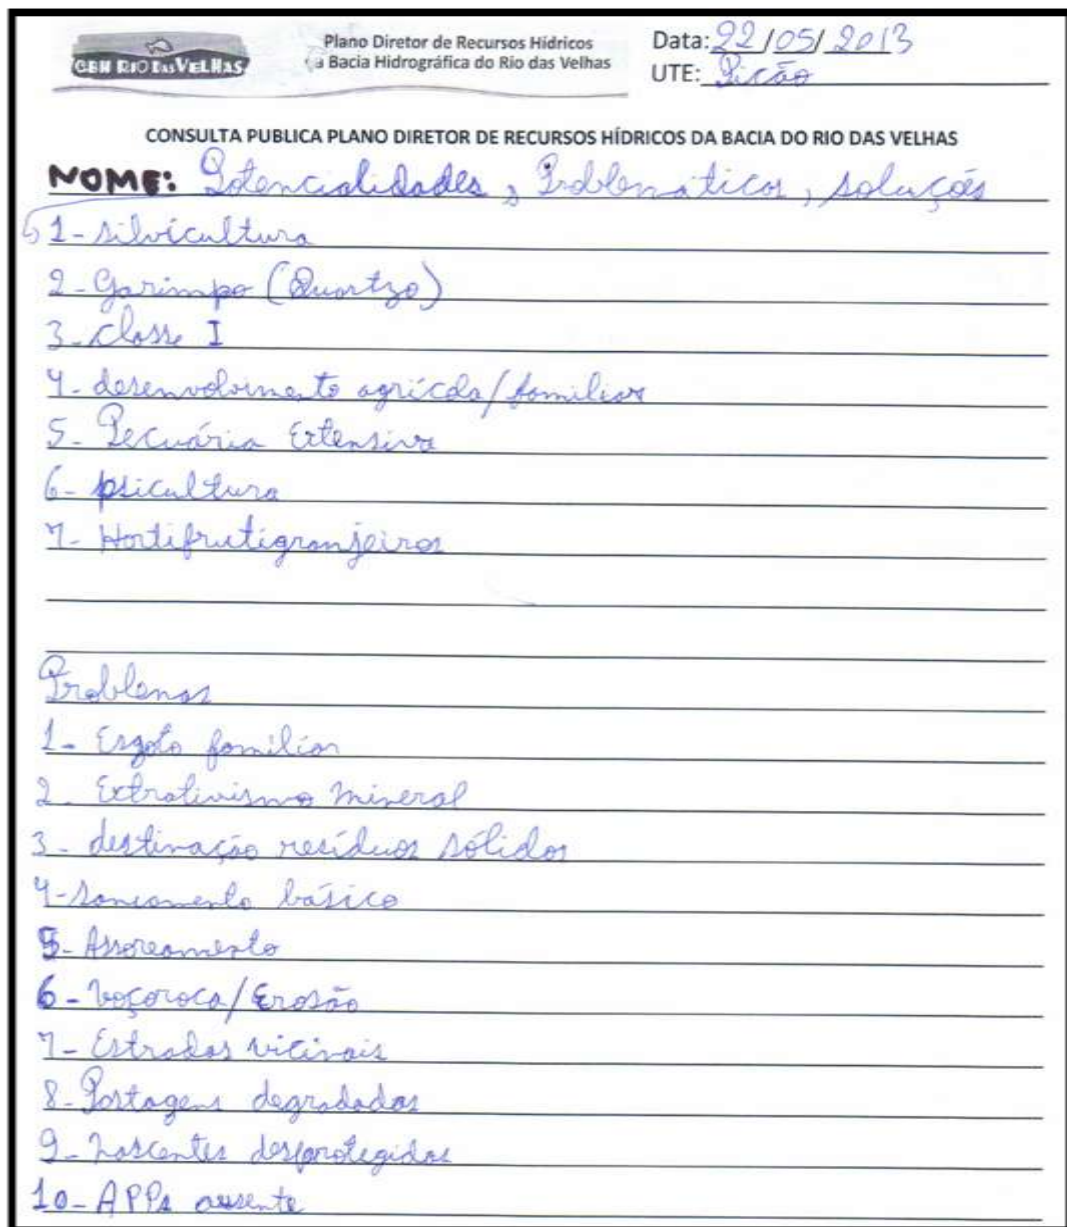 CBH RIO DAS VELHAS
Plano Diretor de Recursos Hídricos
a Bacia Hidrográfica do Rio das Velhas
Data: 22/05/2013
UTE: Picão
CONSULTA PUBLICA PLANO DIRETOR DE RECURSOS HÍDRICOS DA BACIA DO RIO DAS VELHAS
NOME: Potencialidades, Problematicas, soluções
1- silvicultura
2- Garimpo (Quartzo)
3- classe I
4- desenvolvimento agrícola/familiar
5- Pecuária Extensiva
6- psicultura
7- Hortifrutigranjeiros
Problemas
1- Esgoto familiar
2- Extrativismo mineral
3- destinação resíduos sólidos
4- saneamento básico
5- Assoreamento
6- voçoroca/Erosão
7- Estradas vicinais
8- Pastagens degradadas
9- nascentes desprotegidas
10- APPs ausente